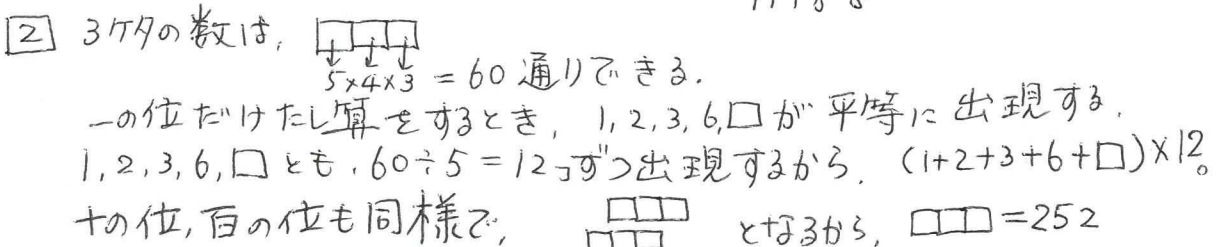 2 3ケタの数は, □□□
5×4×3 = 60通りできる.
一の位だけたし算をするとき, 1, 2, 3, 6, □ が平等に出現する.
1, 2, 3, 6, □ とも, 60÷5=12コずつ出現するから. (1+2+3+6+□)×12。
十の位, 百の位も同様で, □□□ となるから, □□□=252